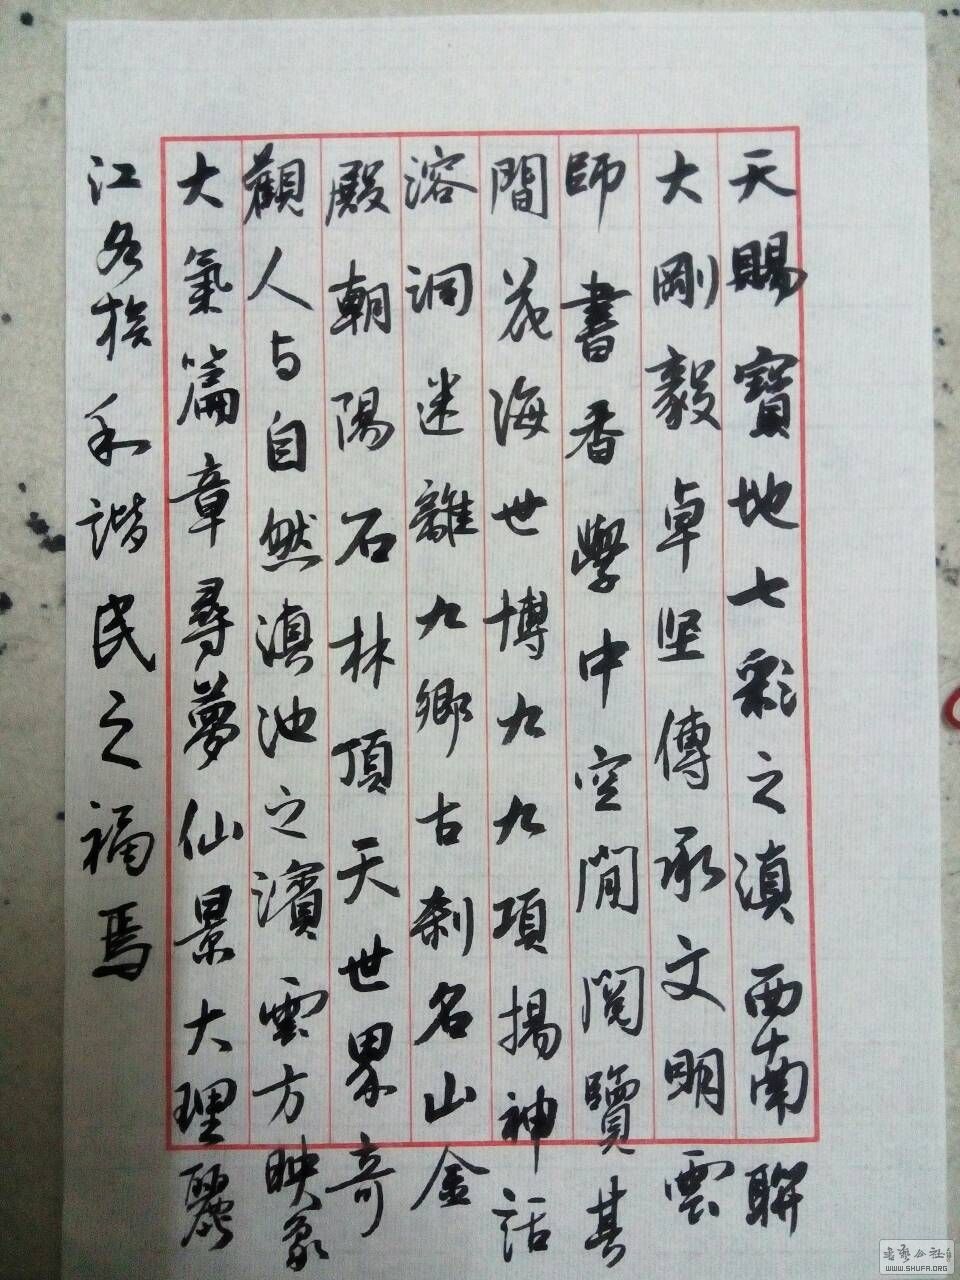 天賜寶地七彩之滇西南聯
大剛毅卓坚傳承文明雲
師書香學中空閒閱覽其
間花海世博九九項揚神話
溶洞迷離九鄉古刹名山金
殿朝陽石林頂天世界奇
觀人与自然滇池之濱雲方映象
大氣篇章尋夢仙景大理麗
江各族和諧民之福焉
WWW.SHUFA.ORG